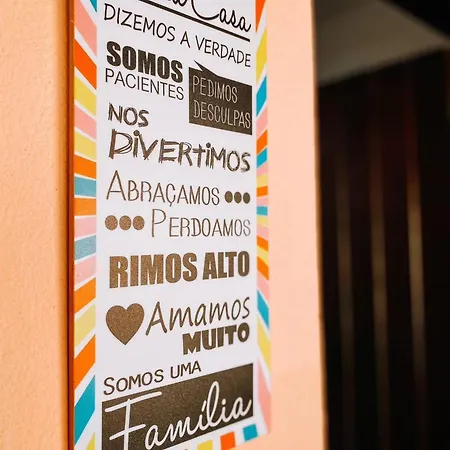 Casa
DIZEMOS A VERDADE
SOMOS
PACIENTES
PEDIMOS
DESCULPAS
NOS
DiVERTiMOS
ABRAÇAMOS
PERDOAMOS
RIMOS ALTO
AMAMOS
MUITO
SOMOS UMA
Família